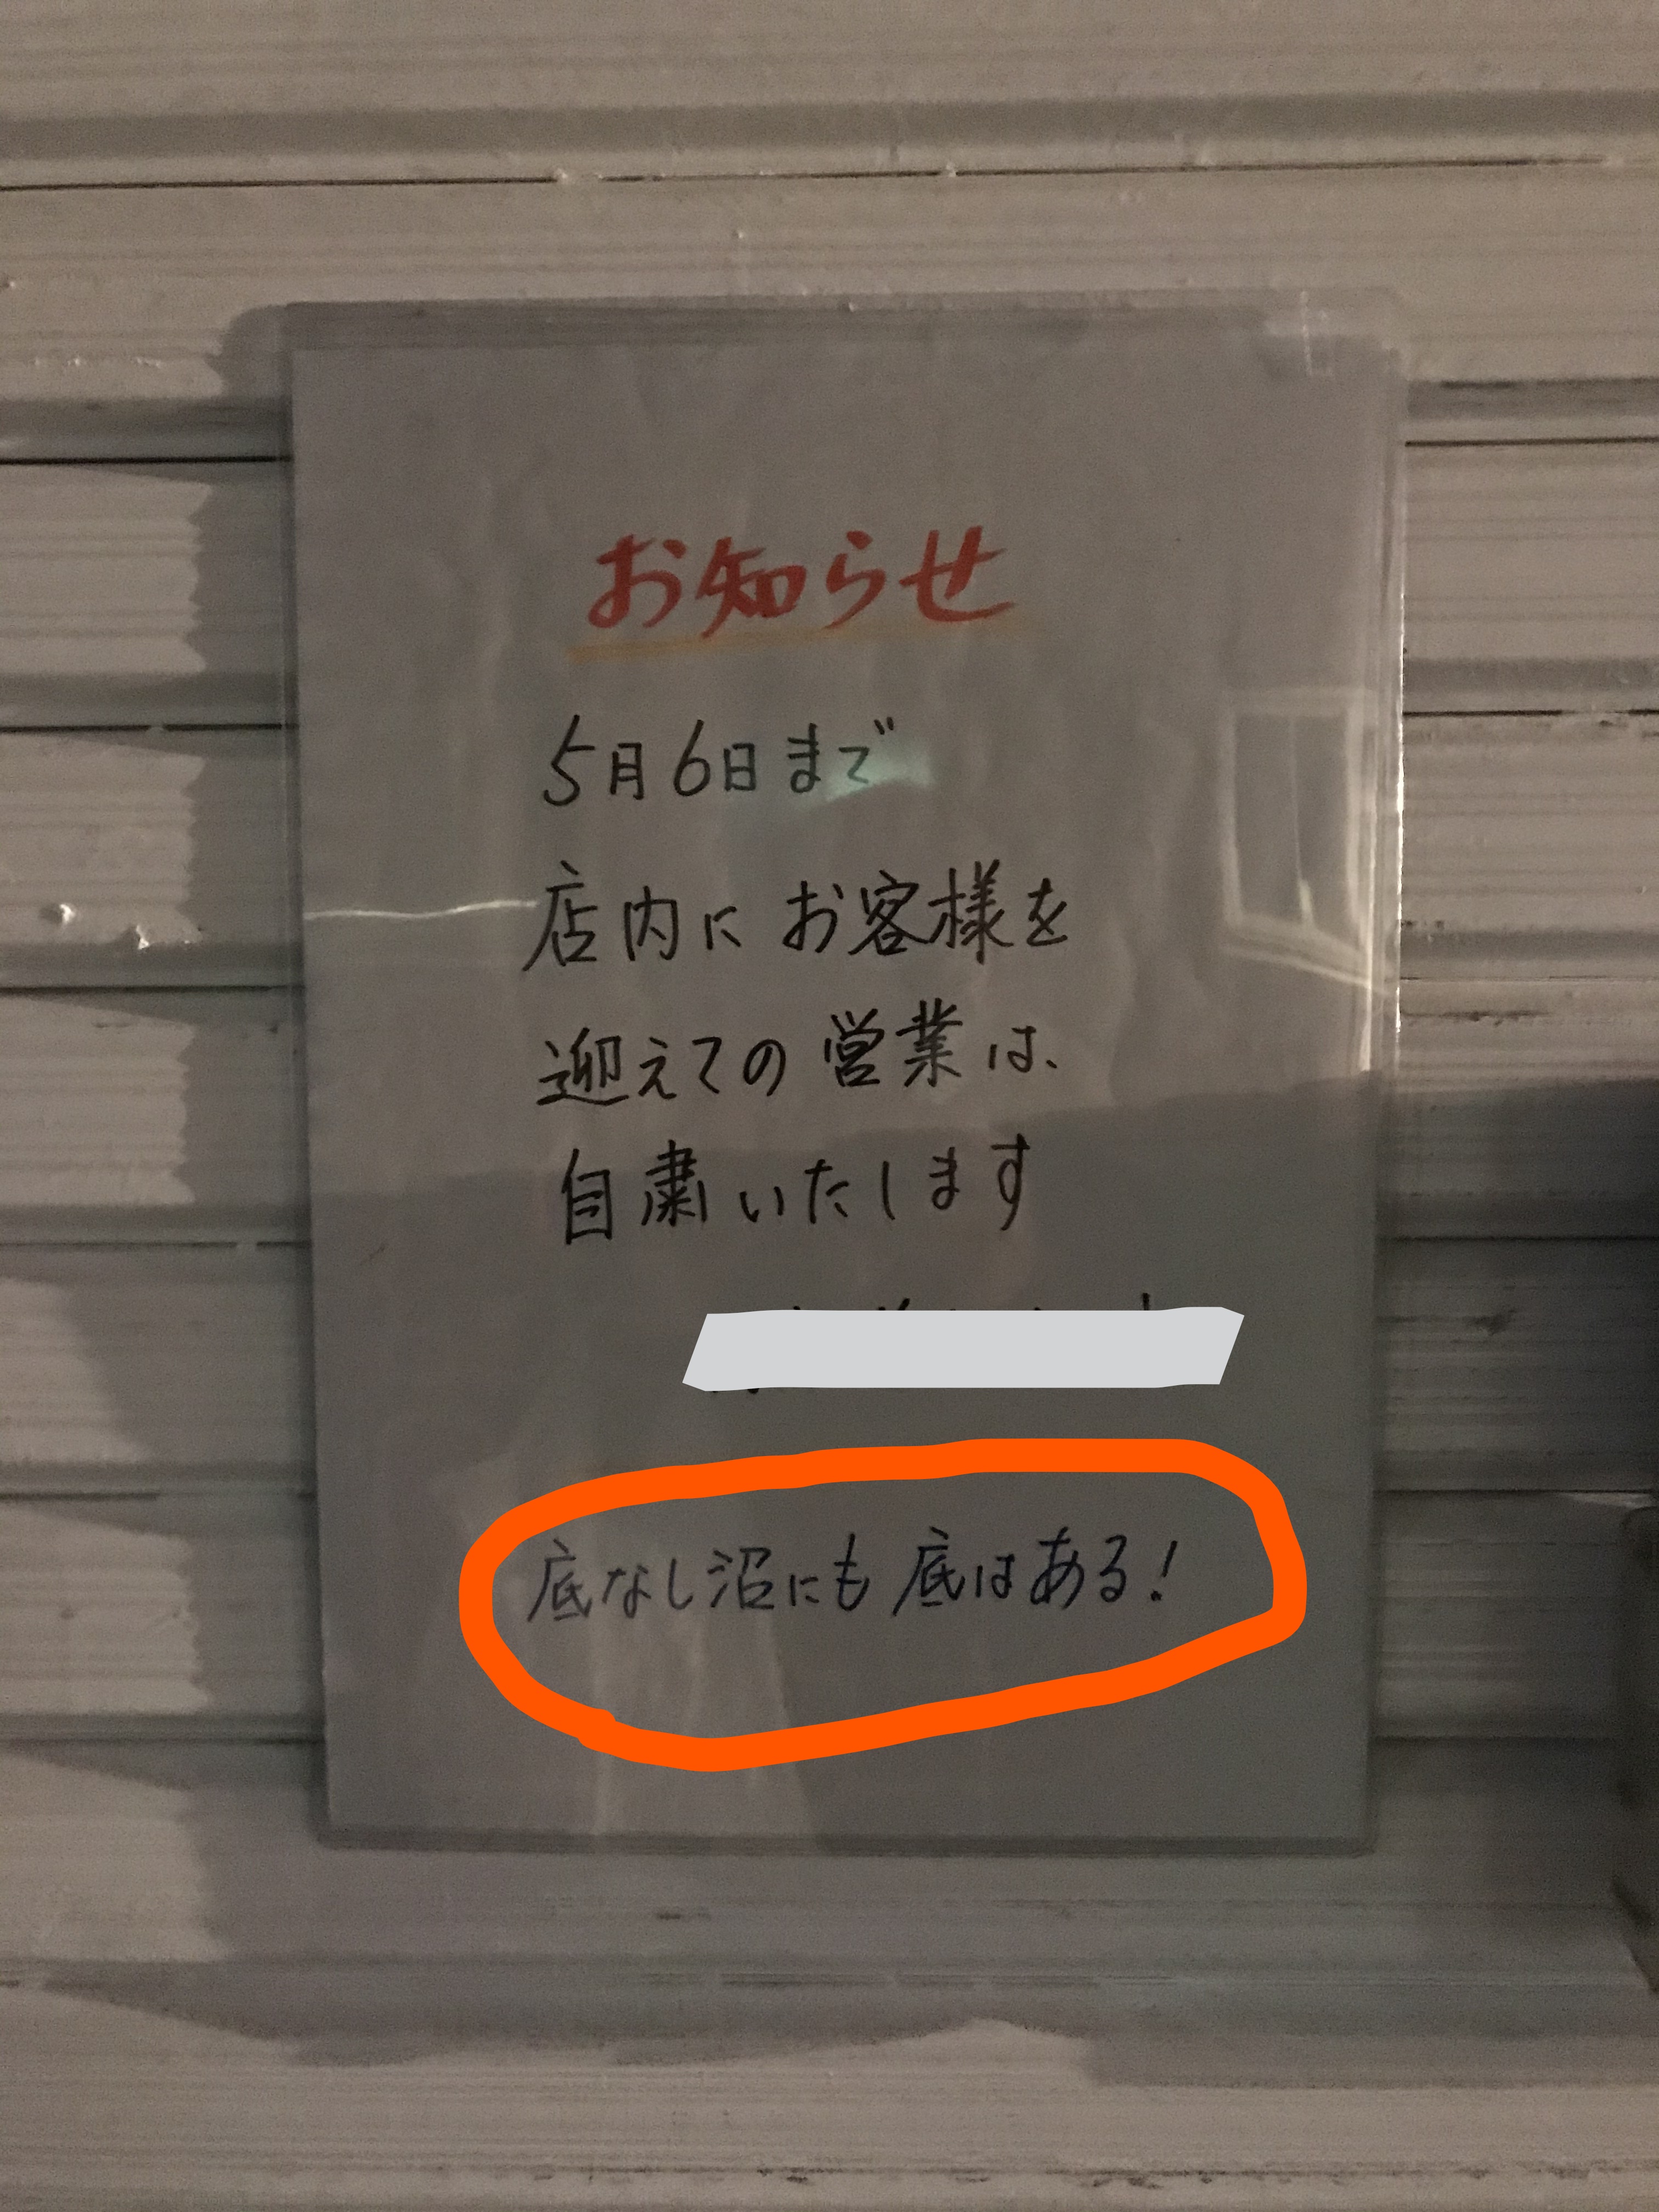 お知らせ
5月6日まで
店内にお客様を
迎えての営業は、
自粛いたします
底なし沼にも底はある!